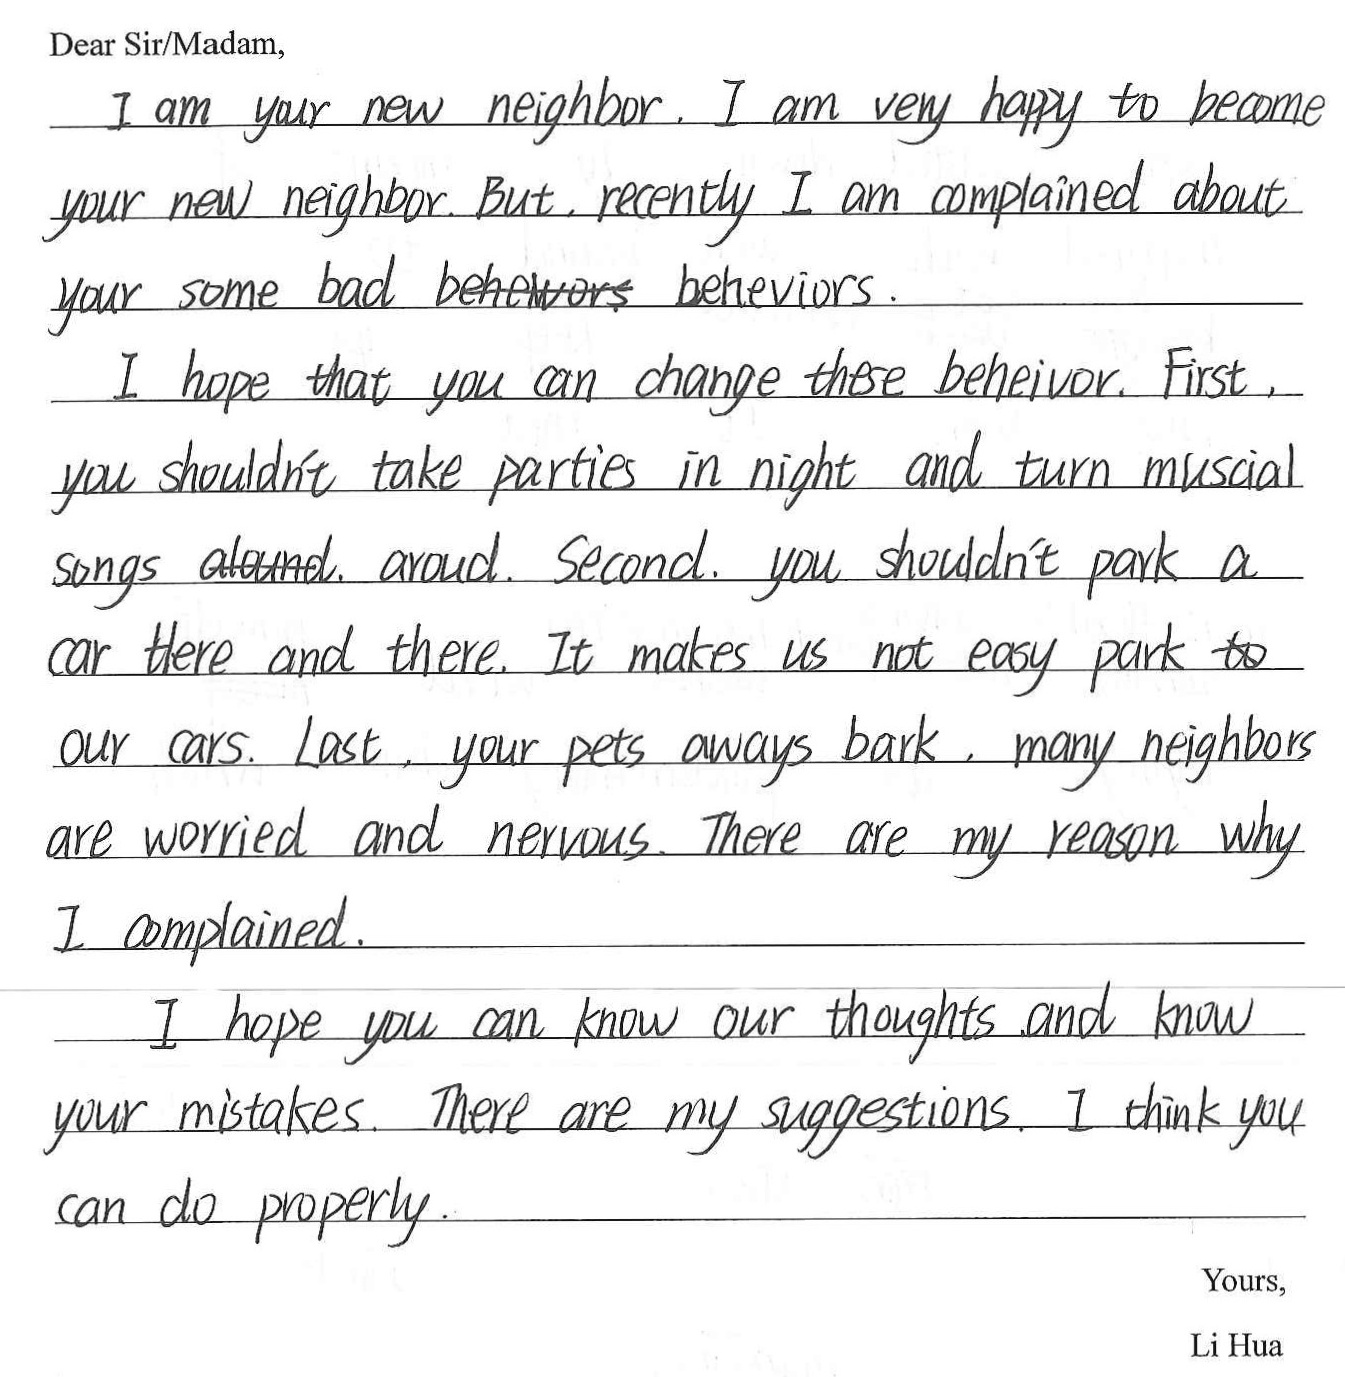 Dear Sir/Madam,
I am your new neighbor. I am very happy to become
your new neighbor. But, recently I am complained about
your some bad behewors beheviors.
I hope that you can change these beheivor. First,
you shouldn't take parties in night and turn muscial
songs alound. aroud. Second. you shouldn't park a
car Here and there. It makes us not easy park to
our cars. Last, your pets aways bark, many neighbors
are worried and nervous. There are my reason why
I complained.
I hope you can know our thoughts and know
your mistakes. There are my suggestions. I think you
can do properly.
Yours,
Li Hua